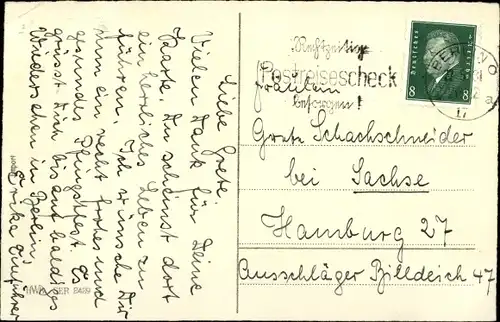 Liebe Grete.
Vielen Dank für Deine
Karte. Du scheinst dort
ein herrliches Leben zu
führen. Ich wünsche Dir
nun ein recht frohes und
gesundes Pfingstfest. Es
grüsst Dich bis auf baldiges
Wiedersehen in Berlin,
Erika
HWB SER 2429
Rechtzeitig
Postreisescheck
besorgen!
Deutsches Reich
8 8
BERLIN
17
Fräulein
Grete Schachschneider
bei Sachse
Hamburg 27
Ausschläger Billdeich 47